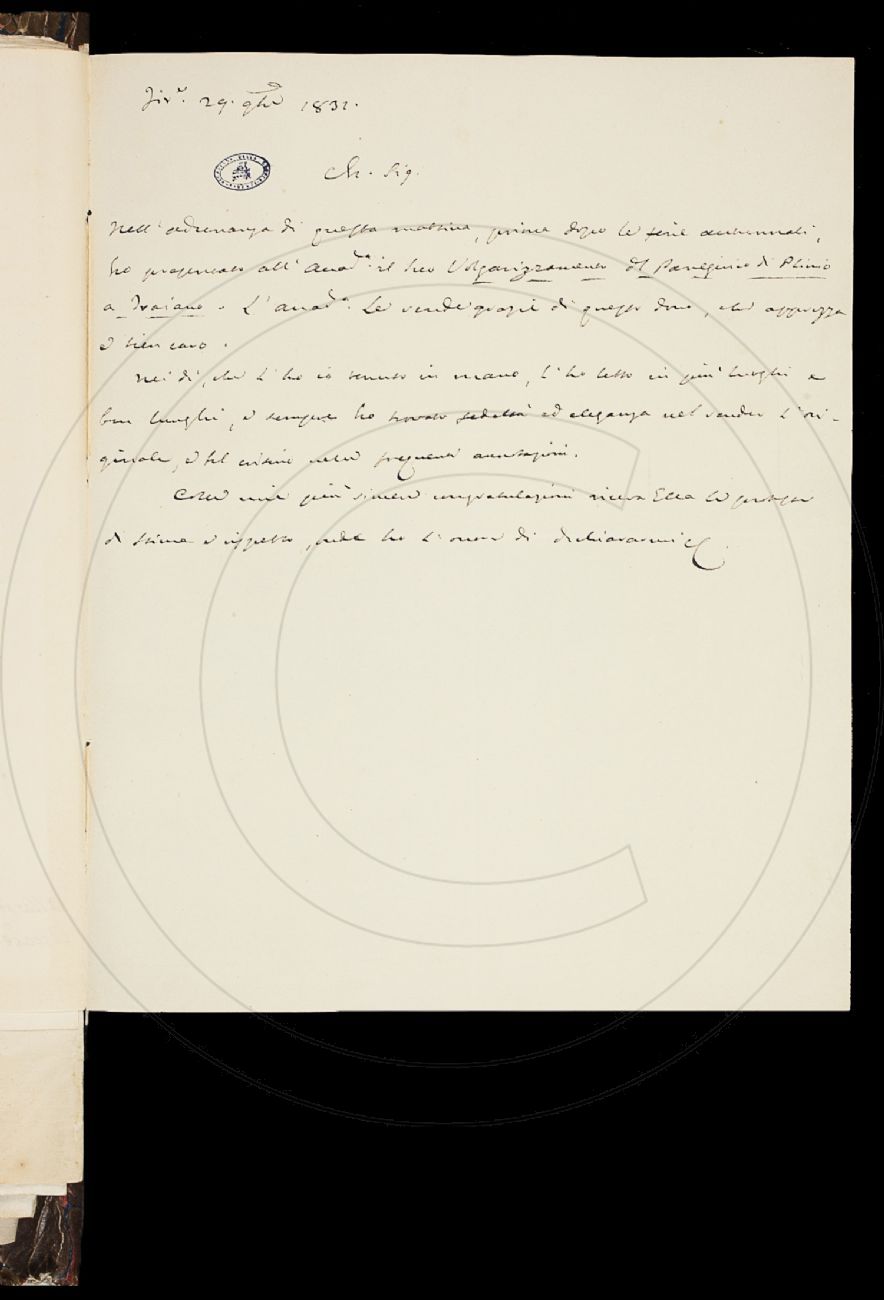 Fir.e 29. 9bre 1831.
Ch. Sig.
Nell'adunanza di questa mattina, prima dopo le ferie autunnali,
ho presentato all'Accad.a il suo Volgarizzamento del Panegirico di Plinio
a Traiano. L'Accad.a Le rende grazie di questo dono, che apprezza
e tien caro.
Nei dì, che l'ho io tenuto in mano, l'ho letto in più luoghi e
ben lunghi, e sempre ho trovato fedeltà ed eleganza nel render l'ori-
ginale, e fil critico nelle frequenti annotazioni.
Colle mie più sincere congratulazioni riceva Ella le proteste
di stima e rispetto, colle ho l'onor di dichiararmi